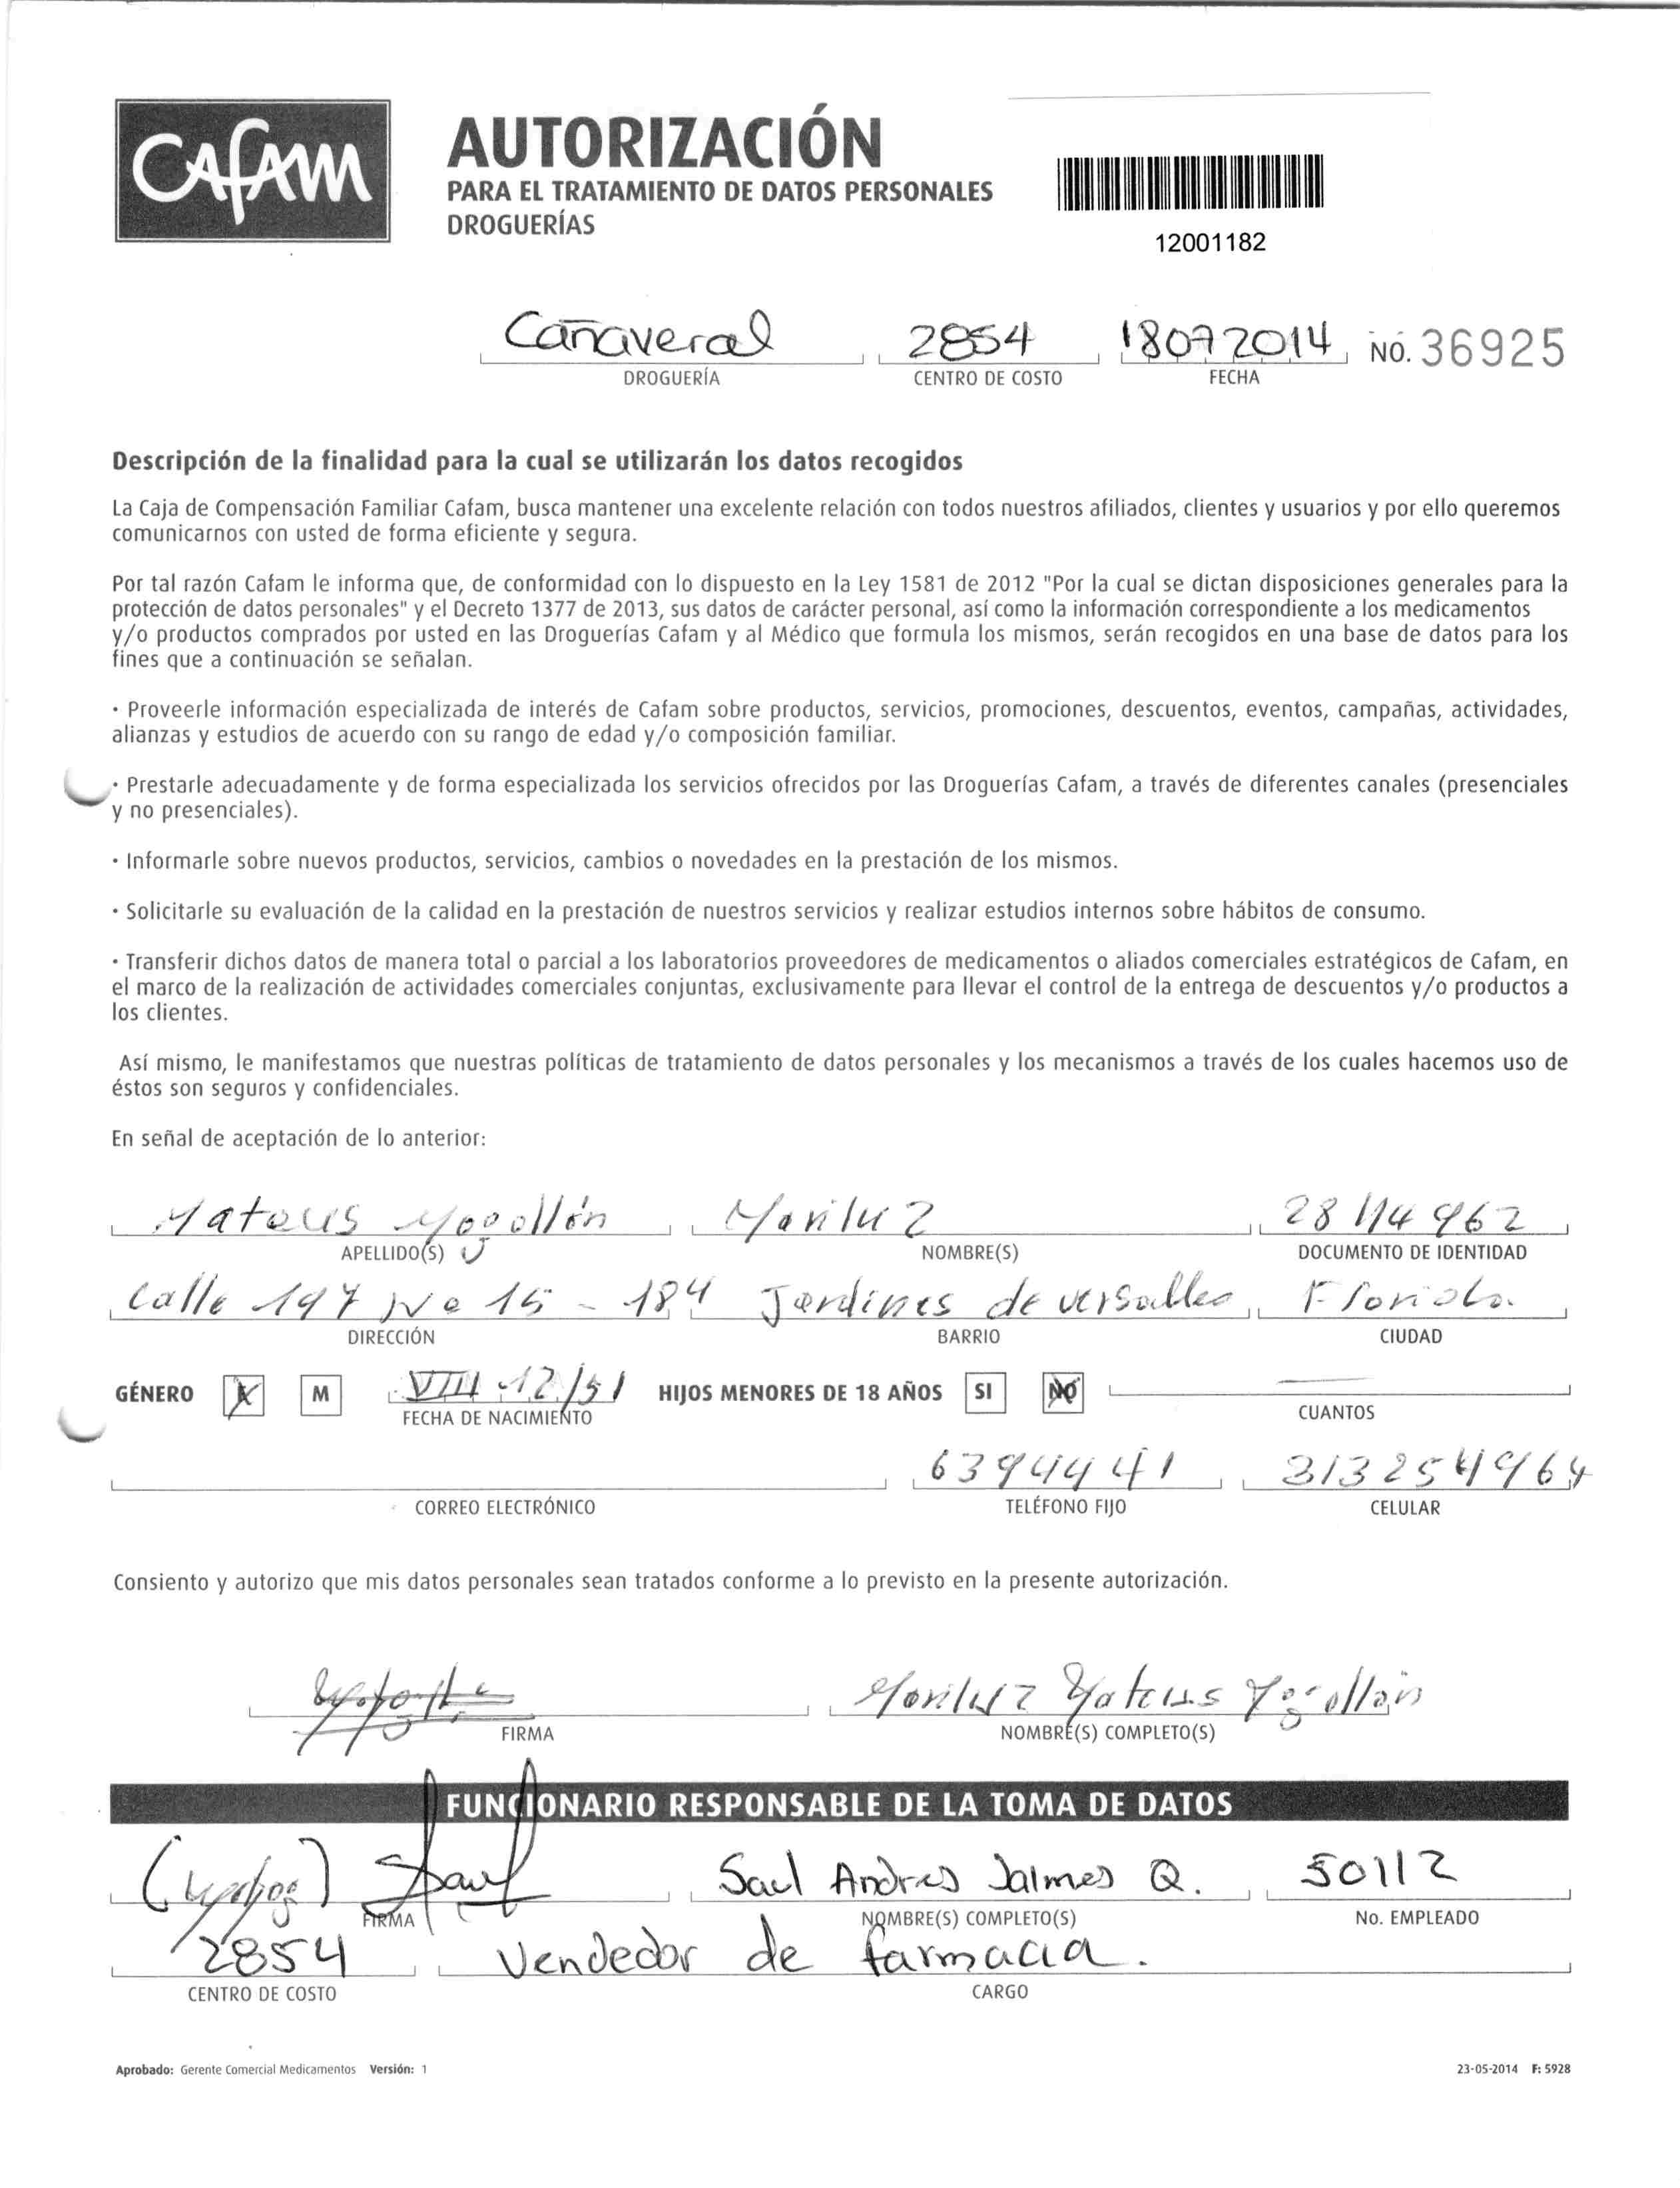 Cafam
AUTORIZACIÓN
PARA EL TRATAMIENTO DE DATOS PERSONALES
DROGUERÍAS
12001182
Cañaveral 2854 18072014 NO. 36925
DROGUERÍA CENTRO DE COSTO FECHA
Descripción de la finalidad para la cual se utilizarán los datos recogidos
La Caja de Compensación Familiar Cafam, busca mantener una excelente relación con todos nuestros afiliados, clientes y usuarios y por ello queremos
comunicarnos con usted de forma eficiente y segura.
Por tal razón Cafam le informa que, de conformidad con lo dispuesto en la Ley 1581 de 2012 "Por la cual se dictan disposiciones generales para la
protección de datos personales" y el Decreto 1377 de 2013, sus datos de carácter personal, así como la información correspondiente a los medicamentos
y/o productos comprados por usted en las Droguerías Cafam y al Médico que formula los mismos, serán recogidos en una base de datos para los
fines que a continuación se señalan.
· Proveerle información especializada de interés de Cafam sobre productos, servicios, promociones, descuentos, eventos, campañas, actividades,
alianzas y estudios de acuerdo con su rango de edad y/o composición familiar.
· Prestarle adecuadamente y de forma especializada los servicios ofrecidos por las Droguerías Cafam, a través de diferentes canales (presenciales
y no presenciales).
· Informarle sobre nuevos productos, servicios, cambios o novedades en la prestación de los mismos.
· Solicitarle su evaluación de la calidad en la prestación de nuestros servicios y realizar estudios internos sobre hábitos de consumo.
· Transferir dichos datos de manera total o parcial a los laboratorios proveedores de medicamentos o aliados comerciales estratégicos de Cafam, en
el marco de la realización de actividades comerciales conjuntas, exclusivamente para llevar el control de la entrega de descuentos y/o productos a
los clientes.
Así mismo, le manifestamos que nuestras políticas de tratamiento de datos personales y los mecanismos a través de los cuales hacemos uso de
éstos son seguros y confidenciales.
En señal de aceptación de lo anterior:
Mateus Mogollón Mariluz 28114962
APELLIDO(S) NOMBRE(S) DOCUMENTO DE IDENTIDAD
Calle 197 No 15 - 184 Jardines de versalles Florida.
DIRECCIÓN BARRIO CIUDAD
GÉNERO X M VIII -12/51 HIJOS MENORES DE 18 AÑOS SI NO
FECHA DE NACIMIENTO CUANTOS
6394441 3132254964
CORREO ELECTRÓNICO TELÉFONO FIJO CELULAR
Consiento y autorizo que mis datos personales sean tratados conforme a lo previsto en la presente autorización.
Mariluz Mateus Mogollón
FIRMA NOMBRE(S) COMPLETO(S)
FUNCIONARIO RESPONSABLE DE LA TOMA DE DATOS
Saul Andres Jalmes Q. 50112
FIRMA NOMBRE(S) COMPLETO(S) No. EMPLEADO
2854 Vendedor de farmacia.
CENTRO DE COSTO CARGO
Aprobado: Gerente Comercial Medicamentos Versión: 1 23-05-2014 F: 5928